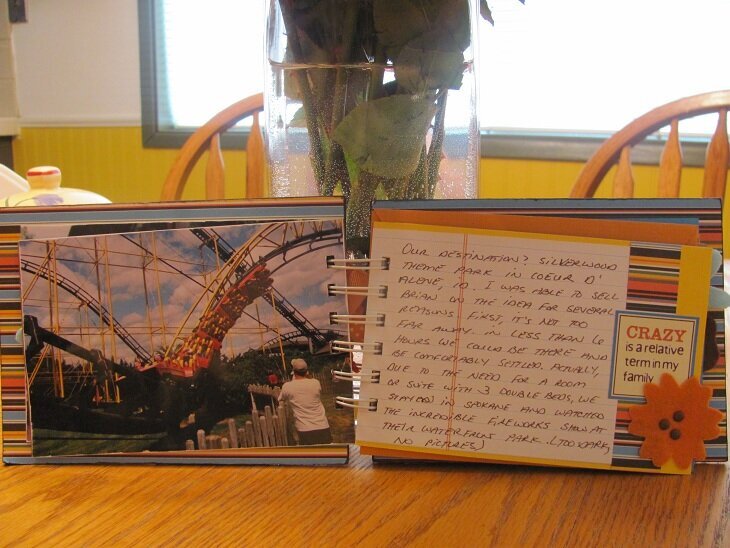 OUR DESTINATION? SILVERWOOD
THEME PARK IN COEUR D'
ALONE, ID. I WAS ABLE TO SELL
BRIAN ON THE IDEA FOR SEVERAL
REASONS FIRST, IT'S NOT TOO
FAR AWAY. IN LESS THAN 6
HOURS WE COULD BE THERE AND
BE COMFORTABLY SETTLED. ACTUALLY,
DUE TO THE NEED FOR A ROOM
OR SUITE WITH 3 DOUBLE BEDS, WE
STAYED IN SPOKANE AND WATCHED
THE INCREDIBLE FIREWORKS SHOW AT
THEIR WATERFRONT PARK. (TOO DARK,
NO PICTURES)
CRAZY
is a relative
term in my
family.